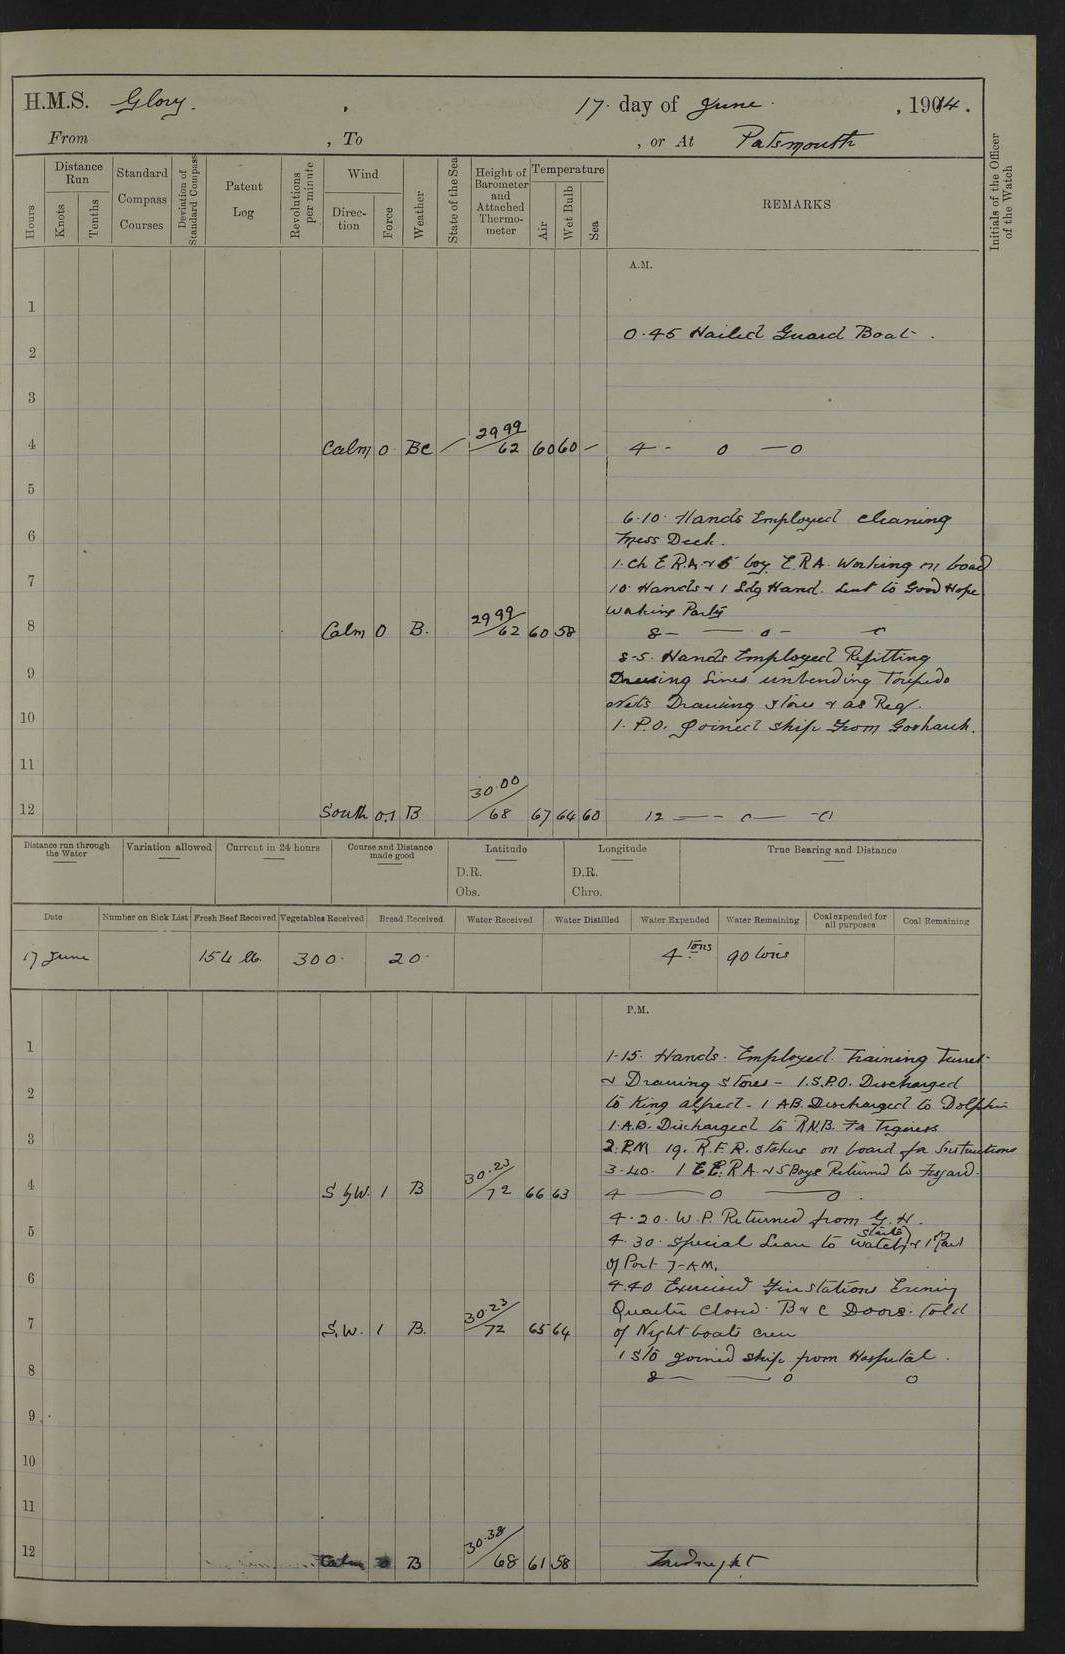 H.M.S. Glory. 17. day of June. , 1914.
From , To , or At Portsmouth
Hours
Distance Run
Knots
Tenths
Standard Compass Courses
Deviation of Standard Compass
Patent Log
Revolutions per minute
Wind
Direction
Force
Weather
State of the Sea
Height of Barometer and Attached Thermometer
Temperature
Air
Wet Bulb
Sea
REMARKS
Initials of the Officer of the Watch
A.M.
1
0.45 Hailed Guard Boat.
2
3
4 Calm 0 BC 29.99/62 60 60 4 - 0 - 0
5
6.10. Hands Employed cleaning
6 Mess Deck.
1. Ch E.R.A. & 5 boy E.R.A. Working on board
7 10. Hands & 1 Ldg Hand. Sent to Good Hope
Working Party
8 Calm 0 B. 29.99/62 60 58 8 - - 0 -
8-5. Hands Employed Refitting
9 Dressing Lines unbending Torpedo
Nets Drawing stores & as Req.
10 1. P.O. joined ship from Goshawk.
11
12 South 0.1 B 30.00/68 67 64 60 12 - - 0 - - 0
Distance run through the Water
Variation allowed
Current in 24 hours
Course and Distance made good
Latitude
D.R.
Obs.
Longitude
D.R.
Chro.
True Bearing and Distance
Date Number on Sick List Fresh Beef Received Vegetables Received Bread Received Water Received Water Distilled Water Expended Water Remaining Coal expended for all purposes Coal Remaining
17 June 154 lb. 300. 20. 4 tons 90 tons
P.M.
1 1-15. Hands. Employed. Training Turret
2 & Drawing stores - 1.S.P.O. Discharged
to King Alfred - 1 AB. Discharged to Dolphin
3 1.A.B. Discharged to R.N.B. Fo Tigress
2. PM 19. R.F.R. Stokers on board for Instructions
3.40. 1 E.R.A. & 5 Boys Returned to Fisgard.
4 S by W. 1 B 30.23/72 66 63 4 - 0 - 0.
4.20. W.P. Returned from G.H.
5 4.30. Special Leave to Watch &
of Port 7-AM.
6 4.40 Exercised Fire stations Evening
Quarters Closed. B & C Doors. told
7 S.W. 1 B. 30.23/72 65 64 of Night boats crew
1 Sto joined ship from Hospital.
8 8 - - 0 0
9
10
11
12 Calm 0 B 30.38/68 61 58 Midnight